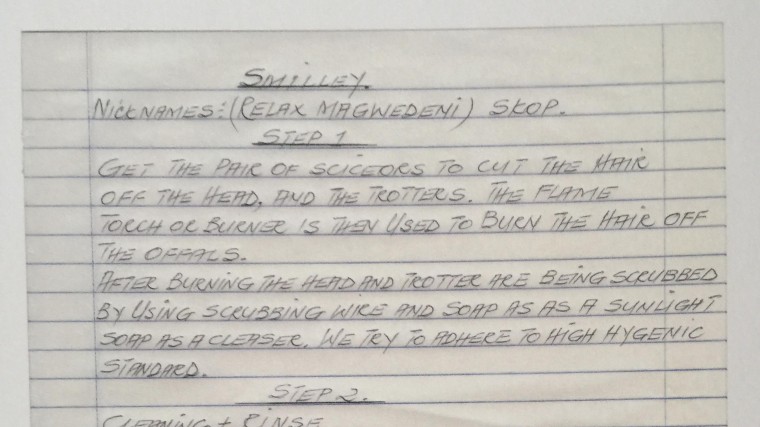 SMILLEY.
NICKNAMES:(RELAX MAGWEDENI) SKOP.
STEP 1
GET THE PAIR OF SCICEORS TO CUT THE HAIR
OFF THE HEAD, AND THE TROTTERS. THE FLAME
TORCH OR BURNER IS THEN USED TO BURN THE HAIR OFF
THE OFFALS.
AFTER BURNING THE HEAD AND TROTTER ARE BEING SCRUBBED
BY USING SCRUBBING WIRE AND SOAP AS AS A SUNLIGHT
SOAP AS A CLEASER. WE TRY TO ADHERE TO HIGH HYGENIC
STANDARD.
STEP 2.
CLEANING + RINSE